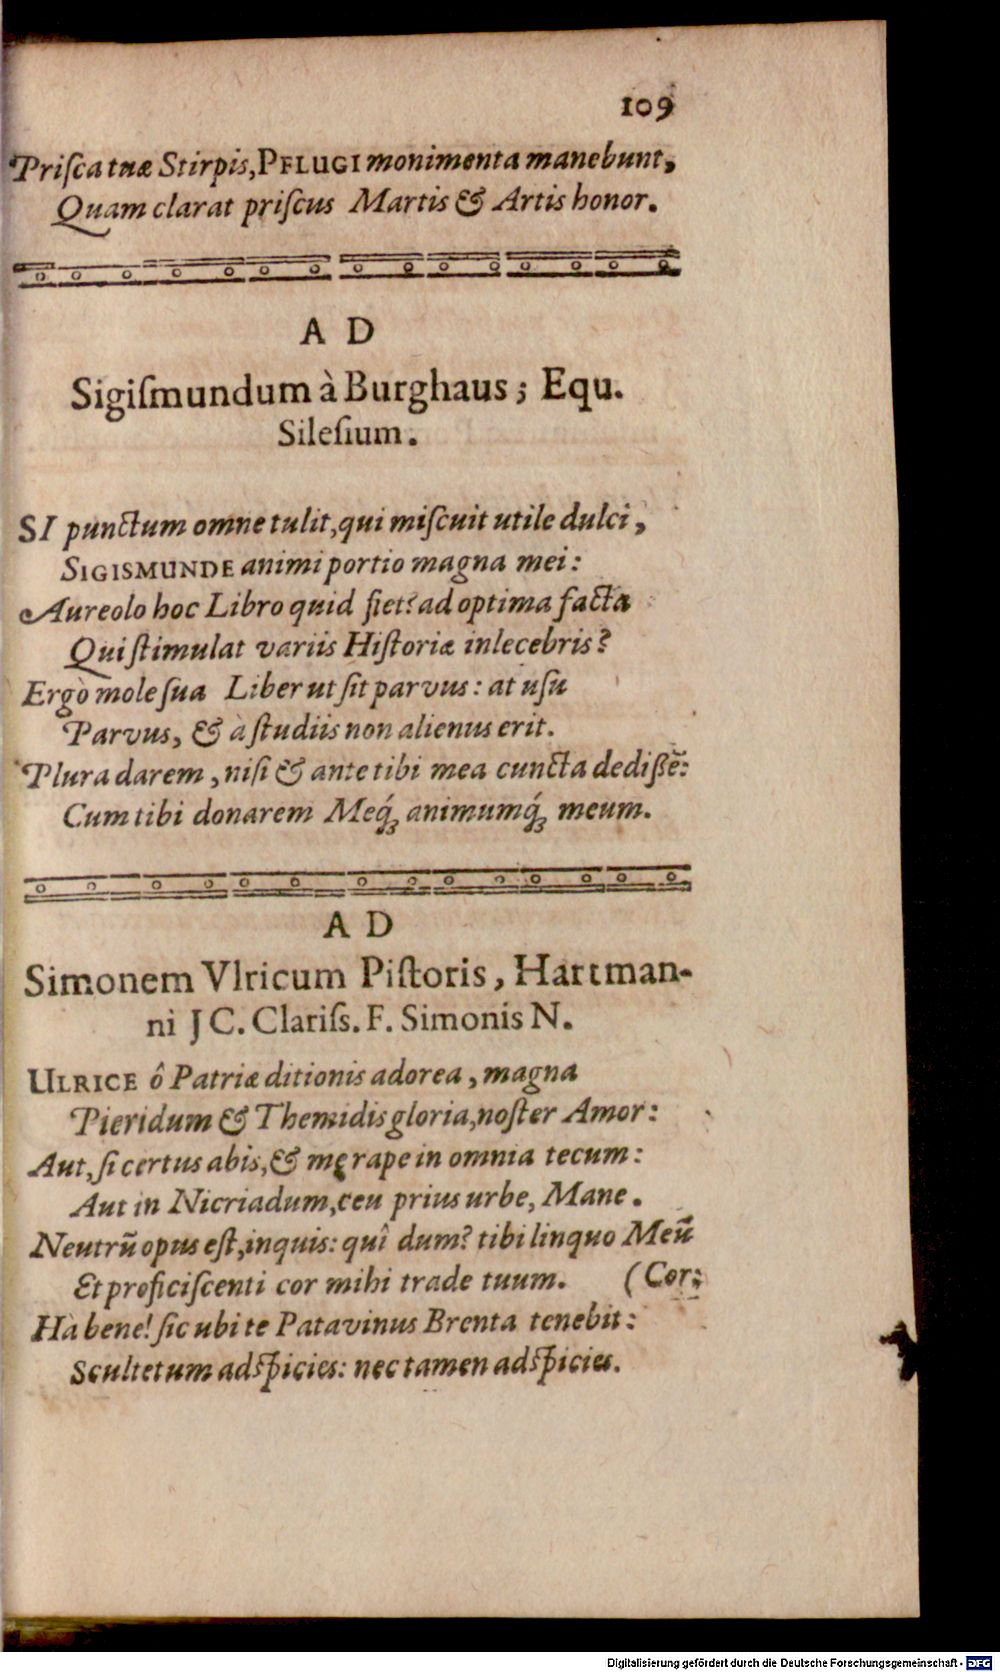 109
Priſca tuæ Stirpis, PFLUGI monimenta manebunt,
Quam clarat priſcus Martis & Artis honor.
A D
Sigiſmundum à Burghaus; Equ.
Sileſium.
SI punctum omne tulit, qui miſcuit utile dulci,
SIGISMUNDE animi portio magna mei:
Aureolo hoc Libro quid fiet? ad optima facta
Qui ſtimulat variis Hiſtoriæ inlecebris?
Ergò mole ſua Liber ut ſit parvus: at uſu
Parvus, & à ſtudiis non alienus erit.
Plura darem, niſi & ante tibi mea cuncta dediſſẽ:
Cum tibi donarem Meq́; animumq́; meum.
A D
Simonem Vlricum Piſtoris, Hartman-
ni J C. Clariſs. F. Simonis N.
ULRICE ô Patriæ ditionis adorea, magna
Pieridum & Themidis gloria, noſter Amor:
Aut, ſi certus abis, & mę rape in omnia tecum:
Aut in Nicriadum, ceu prius urbe, Mane.
Neutrũ opus eſt, inquis: quî dum? tibi linquo Meũ
Et proficiſcenti cor mihi trade tuum. (Cor:
Hà bene! ſic ubi te Patavinus Brenta tenebit:
Scultetum adſpicies: nec tamen adſpicies.
Digitalisierung gefördert durch die Deutsche Forschungsgemeinschaft - DFG